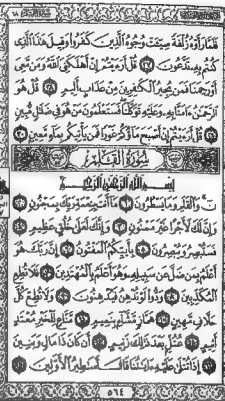 فَلَمَّا رَأَوْهُ زُلْفَةً سِيٓـَٔتْ وُجُوهُ الَّذِينَ كَفَرُوا وَقِيلَ هَٰذَا الَّذِي
كُنتُم بِهِ تَدَّعُونَ ٢٧ قُلْ أَرَءَيْتُمْ إِنْ أَهْلَكَنِيَ اللَّهُ وَمَن مَّعِيَ
أَوْ رَحِمَنَا فَمَن يُجِيرُ الْكَٰفِرِينَ مِنْ عَذَابٍ أَلِيمٍ ٢٨ قُلْ هُوَ
الرَّحْمَٰنُ ءَامَنَّا بِهِ وَعَلَيْهِ تَوَكَّلْنَا فَسَتَعْلَمُونَ مَنْ هُوَ فِي ضَلَٰلٍ مُّبِينٍ
٢٩ قُلْ أَرَءَيْتُمْ إِنْ أَصْبَحَ مَاؤُكُمْ غَوْرًا فَمَن يَأْتِيكُم بِمَاءٍ مَّعِينٍ ٣٠
سُورَةُ الْقَلَمِ
بِسْمِ اللَّهِ الرَّحْمَٰنِ الرَّحِيمِ
نٓ وَالْقَلَمِ وَمَا يَسْطُرُونَ ١ مَا أَنتَ بِنِعْمَةِ رَبِّكَ بِمَجْنُونٍ ٢
وَإِنَّ لَكَ لَأَجْرًا غَيْرَ مَمْنُونٍ ٣ وَإِنَّكَ لَعَلَىٰ خُلُقٍ عَظِيمٍ ٤
فَسَتُبْصِرُ وَيُبْصِرُونَ ٥ بِأَييِّكُمُ الْمَفْتُونُ ٦ إِنَّ رَبَّكَ هُوَ
أَعْلَمُ بِمَن ضَلَّ عَن سَبِيلِهِ وَهُوَ أَعْلَمُ بِالْمُهْتَدِينَ ٧ فَلَا تُطِعِ
الْمُكَذِّبِينَ ٨ وَدُّوا لَوْ تُدْهِنُ فَيُدْهِنُونَ ٩ وَلَا تُطِعْ كُلَّ
حَلَّافٍ مَّهِينٍ ١٠ هَمَّازٍ مَّشَّاءٍ بِنَمِيمٍ ١١ مَّنَّاعٍ لِّلْخَيْرِ مُعْتَدٍ
أَثِيمٍ ١٢ عُتُلٍّ بَعْدَ ذَٰلِكَ زَنِيمٍ ١٣ أَن كَانَ ذَا مَالٍ وَبَنِينَ
١٤ إِذَا تُتْلَىٰ عَلَيْهِ ءَايَٰتُنَا قَالَ أَسَٰطِيرُ الْأَوَّلِينَ ١٥
٥٦٤